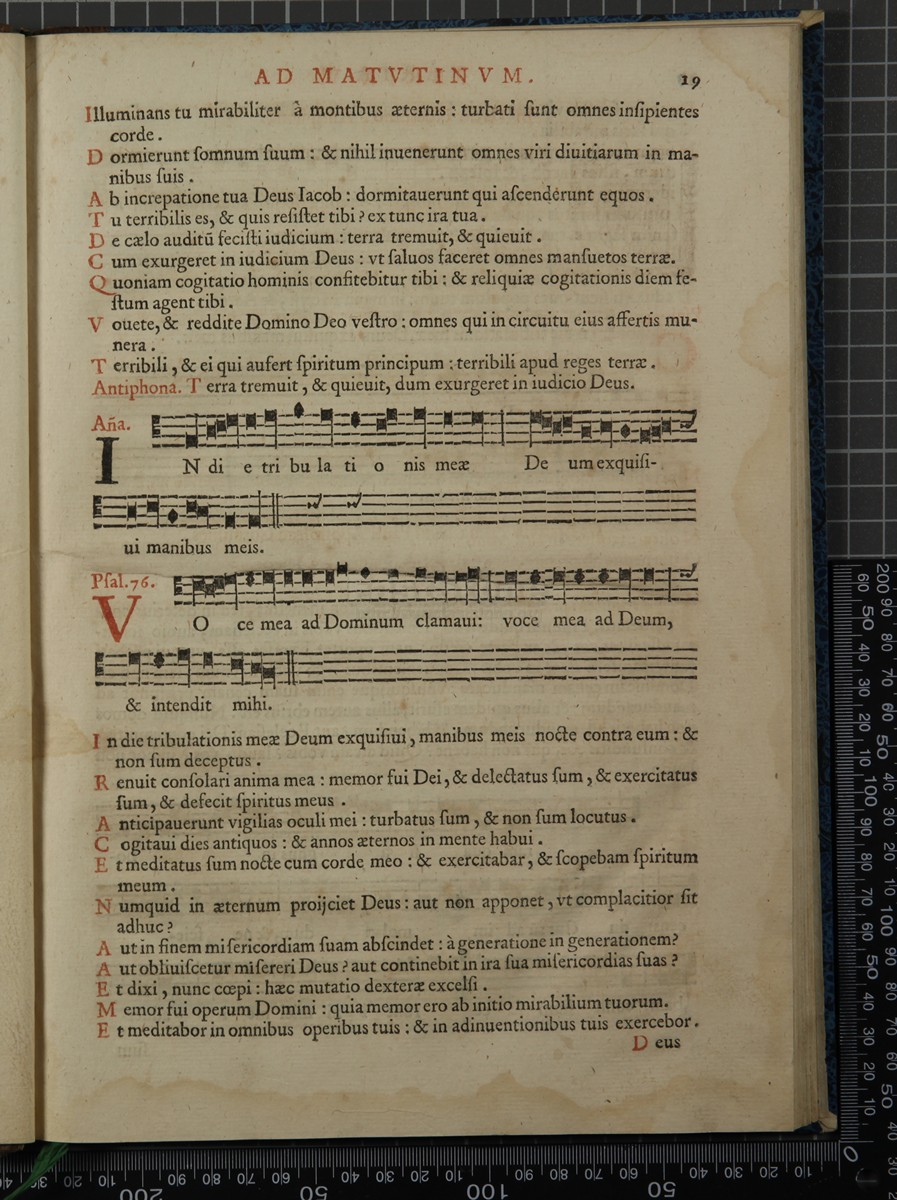 AD MATVTINVM. 19
Illuminans tu mirabiliter à montibus æternis : turbati ſunt omnes inſipientes
corde .
D ormierunt ſomnum ſuum : & nihil inuenerunt omnes viri diuitiarum in ma-
nibus ſuis .
A b increpatione tua Deus Iacob : dormitauerunt qui aſcenderunt equos .
T u terribilis es, & quis reſiſtet tibi ? ex tunc ira tua .
D e cælo auditũ feciſti iudicium : terra tremuit, & quieuit .
C um exurgeret in iudicium Deus : vt ſaluos faceret omnes manſuetos terræ.
Q uoniam cogitatio hominis confitebitur tibi : & reliquiæ cogitationis diem fe-
ſtum agent tibi .
V ouete, & reddite Domino Deo veſtro : omnes qui in circuitu eius affertis mu-
nera .
T erribili , & ei qui aufert ſpiritum principum : terribili apud reges terræ .
Antiphona. T erra tremuit , & quieuit, dum exurgeret in iudicio Deus.
Aña.
IN di e tri bu la ti o nis meæ De um exquiſi-
ui manibus meis.
Pſal.76.
VO ce mea ad Dominum clamaui: voce mea ad Deum,
& intendit mihi.
I n die tribulationis meæ Deum exquiſiui , manibus meis nocte contra eum : &
non ſum deceptus .
R enuit conſolari anima mea : memor fui Dei, & delectatus ſum , & exercitatus
ſum, & defecit ſpiritus meus .
A nticipauerunt vigilias oculi mei : turbatus ſum , & non ſum locutus .
C ogitaui dies antiquos : & annos æternos in mente habui .
E t meditatus ſum nocte cum corde meo : & exercitabar, & ſcopebam ſpiritum
meum .
N umquid in æternum proijciet Deus : aut non apponet , vt complacitior ſit
adhuc ?
A ut in finem miſericordiam ſuam abſcindet : à generatione in generationem?
A ut obliuiſcetur miſereri Deus ? aut continebit in ira ſua miſericordias ſuas ?
E t dixi , nunc cœpi : hæc mutatio dexteræ excelſi .
M emor fui operum Domini : quia memor ero ab initio mirabilium tuorum.
E t meditabor in omnibus operibus tuis : & in adinuentionibus tuis exercebor.
D eus